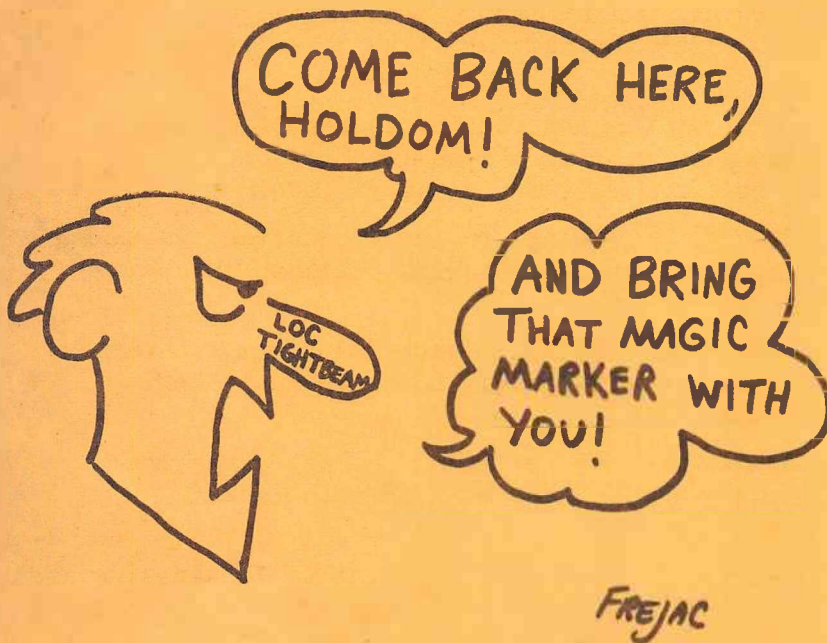 COME BACK HERE,
HOLDOM!
AND BRING
THAT MAGIC
MARKER WITH
YOU!
LOC
TIGHTBEAM
FREJAC